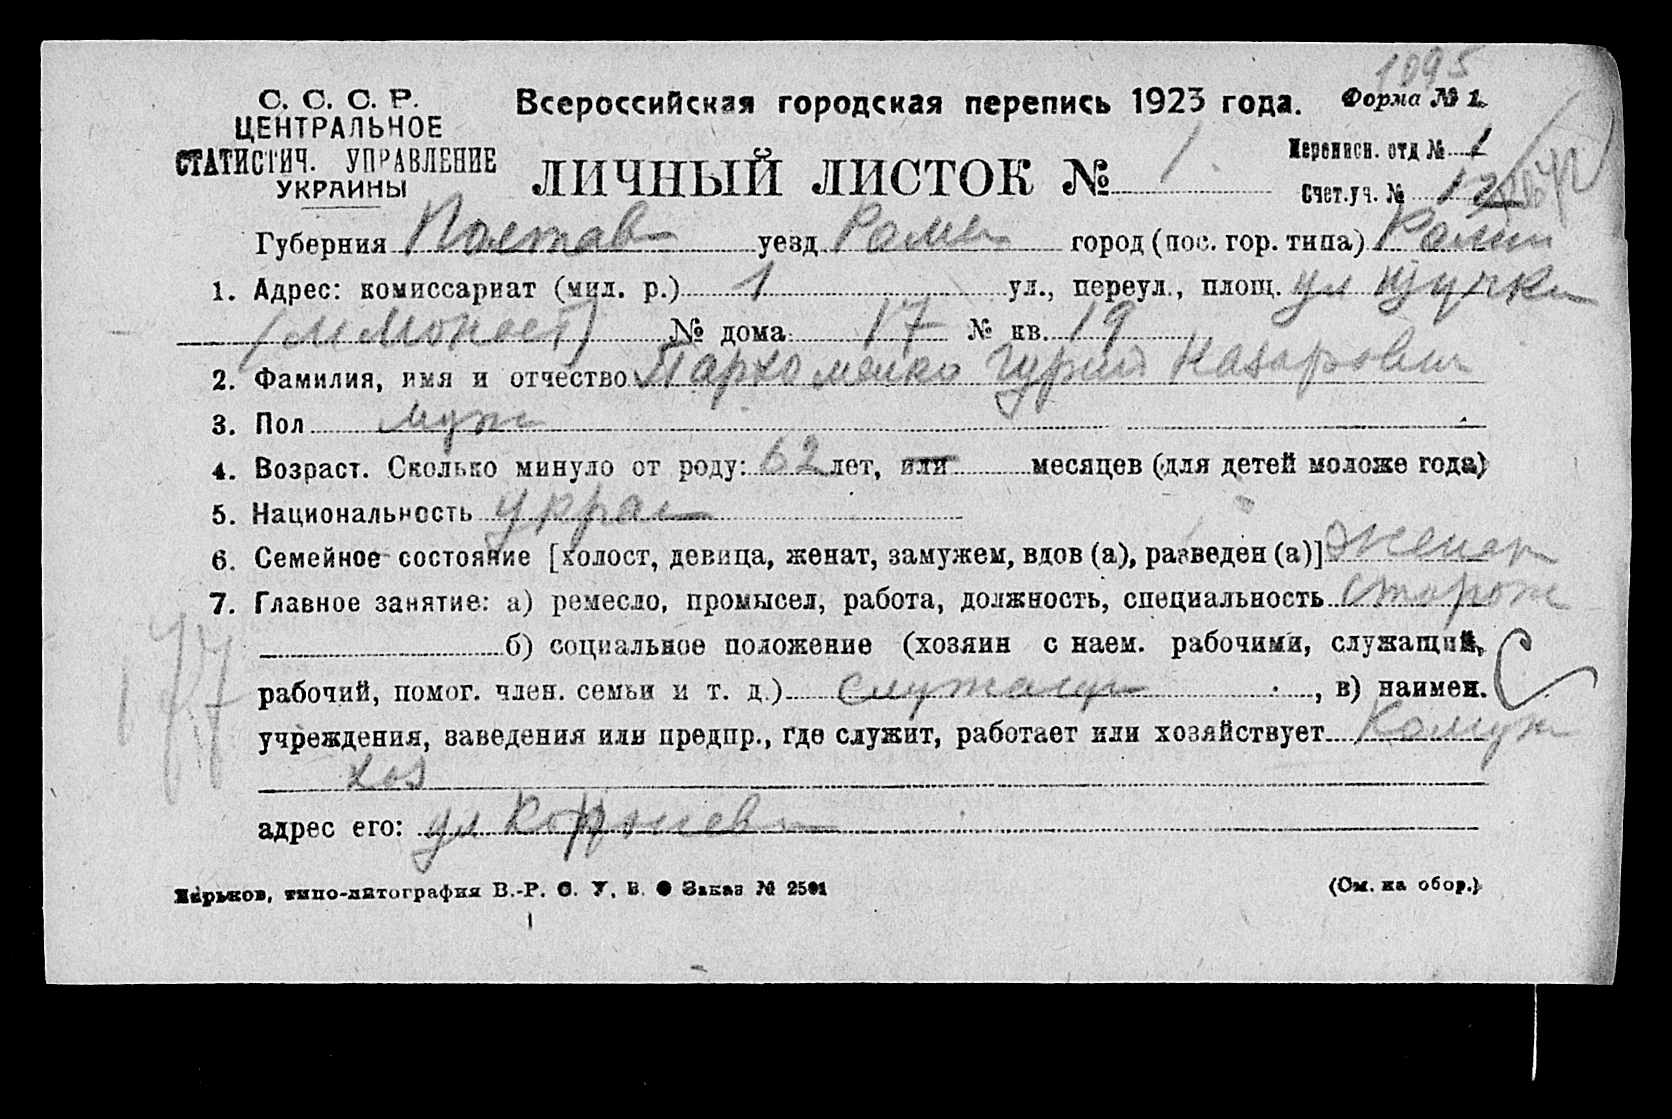 1095
С. С. С. Р.
ЦЕНТРАЛЬНОЕ
СТАТИСТИЧ. УПРАВЛЕНИЕ
УКРАИНЫ
Всероссийская городская перепись 1923 года.
Форма № 1.
ЛИЧНЫЙ ЛИСТОК № 1.
Переписн. отд № 1
Счет.уч. № 12
Губерния Полтав уезд Ромен город (пос. гор. типа) Ромны
1. Адрес: комиссариат (мил. р.) 1 ул., переул., площ. ул
№ дома 17 № кв. 19
2. Фамилия, имя и отчество Пархоменко Гурий Назарович
3. Пол муж
4. Возраст. Сколько минуло от роду: 62 лет, или месяцев (для детей моложе года)
5. Национальность украин
6. Семейное состояние [холост, девица, женат, замужем, вдов (а), разведен (а)] женат
7. Главное занятие: а) ремесло, промысел, работа, должность, специальность сторож
б) социальное положение (хозяин с наем. рабочими, служащий,
рабочий, помог. член. семьи и т. д.) служащий, в) наимен.
учреждения, заведения или предпр., где служит, работает или хозяйствует Комун
хоз
адрес его: ул
177
Харьков, типо-литография В.-Р. С. У. В. Заказ № 2501
(См. на обор.)